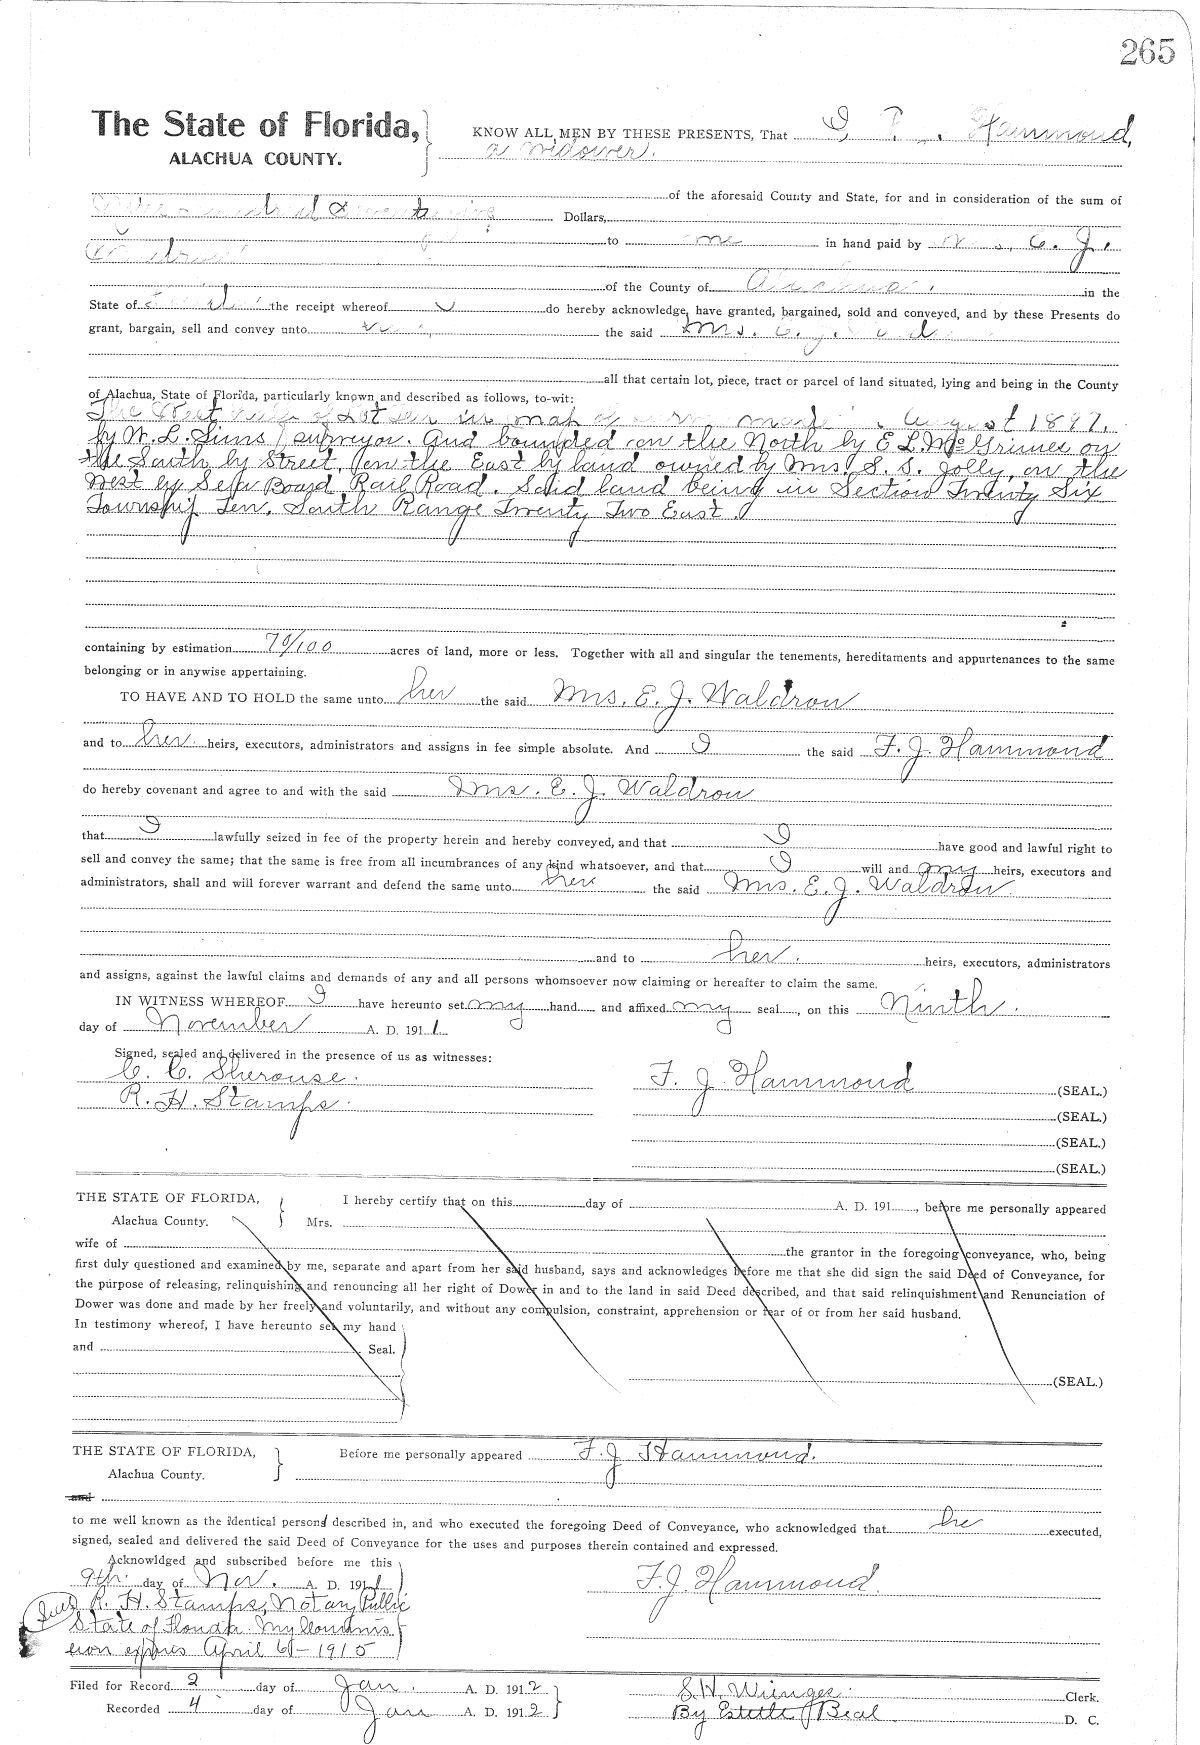 265
The State of Florida,
ALACHUA COUNTY.
KNOW ALL MEN BY THESE PRESENTS, That I, Hammond,
a widower.
of the aforesaid County and State, for and in consideration of the sum of
Dollars,
to me in hand paid by E. J.
of the County of Alachua, in the
State of the receipt whereof I do hereby acknowledge, have granted, bargained, sold and conveyed, and by these Presents do
grant, bargain, sell and convey unto the said Mrs. E. J.
all that certain lot, piece, tract or parcel of land situated, lying and being in the County
of Alachua, State of Florida, particularly known and described as follows, to-wit:
The West half of Lot Ten in map of made August 1887.
by W. L. Sims surveyor. And bounded on the North by E L. McGrimes on
the South by Street, on the East by land owned by Mrs. S. S. Jolly, on the
West by Sea Board Rail Road. Said land being in Section Twenty Six
Township Ten, South Range Twenty Two East
containing by estimation 70/100 acres of land, more or less. Together with all and singular the tenements, hereditaments and appurtenances to the same
belonging or in anywise appertaining.
TO HAVE AND TO HOLD the same unto her the said Mrs. E. J. Waldron
and to her heirs, executors, administrators and assigns in fee simple absolute. And I the said F. J. Hammond
do hereby covenant and agree to and with the said Mrs. E. J. Waldron
that I lawfully seized in fee of the property herein and hereby conveyed, and that I have good and lawful right to
sell and convey the same; that the same is free from all incumbrances of any kind whatsoever, and that I will and my heirs, executors and
administrators, shall and will forever warrant and defend the same unto her the said Mrs. E. J. Waldron
and to her. heirs, executors, administrators
and assigns, against the lawful claims and demands of any and all persons whomsoever now claiming or hereafter to claim the same.
IN WITNESS WHEREOF I have hereunto set my hand and affixed my seal, on this Ninth.
day of November A. D. 1911.
Signed, sealed and delivered in the presence of us as witnesses:
C. C. Sherouse.
F. J. Hammond (SEAL.)
R. H. Stamps.
(SEAL.)
(SEAL.)
(SEAL.)
THE STATE OF FLORIDA,
Alachua County.
I hereby certify that on this day of A. D. 191, before me personally appeared
Mrs.
wife of the grantor in the foregoing conveyance, who, being
first duly questioned and examined by me, separate and apart from her said husband, says and acknowledges before me that she did sign the said Deed of Conveyance, for
the purpose of releasing, relinquishing and renouncing all her right of Dower in and to the land in said Deed described, and that said relinquishment and Renunciation of
Dower was done and made by her freely and voluntarily, and without any compulsion, constraint, apprehension or fear of or from her said husband.
In testimony whereof, I have hereunto set my hand
and Seal.
(SEAL.)
THE STATE OF FLORIDA,
Alachua County.
Before me personally appeared F. J Hammond.
and
to me well known as the identical person described in, and who executed the foregoing Deed of Conveyance, who acknowledged that he executed,
signed, sealed and delivered the said Deed of Conveyance for the uses and purposes therein contained and expressed.
Acknowldged and subscribed before me this
9th. day of Nov. A. D. 1911
F. J. Hammond.
R. H. Stamps, Notary Public
State of Florida. My Commis
sion expires April 6-1915
Filed for Record 2 day of Jan. A. D. 1912
S. H. Wienges. Clerk.
Recorded 4 day of Jan A. D. 1912
By Estelle Beal D. C.